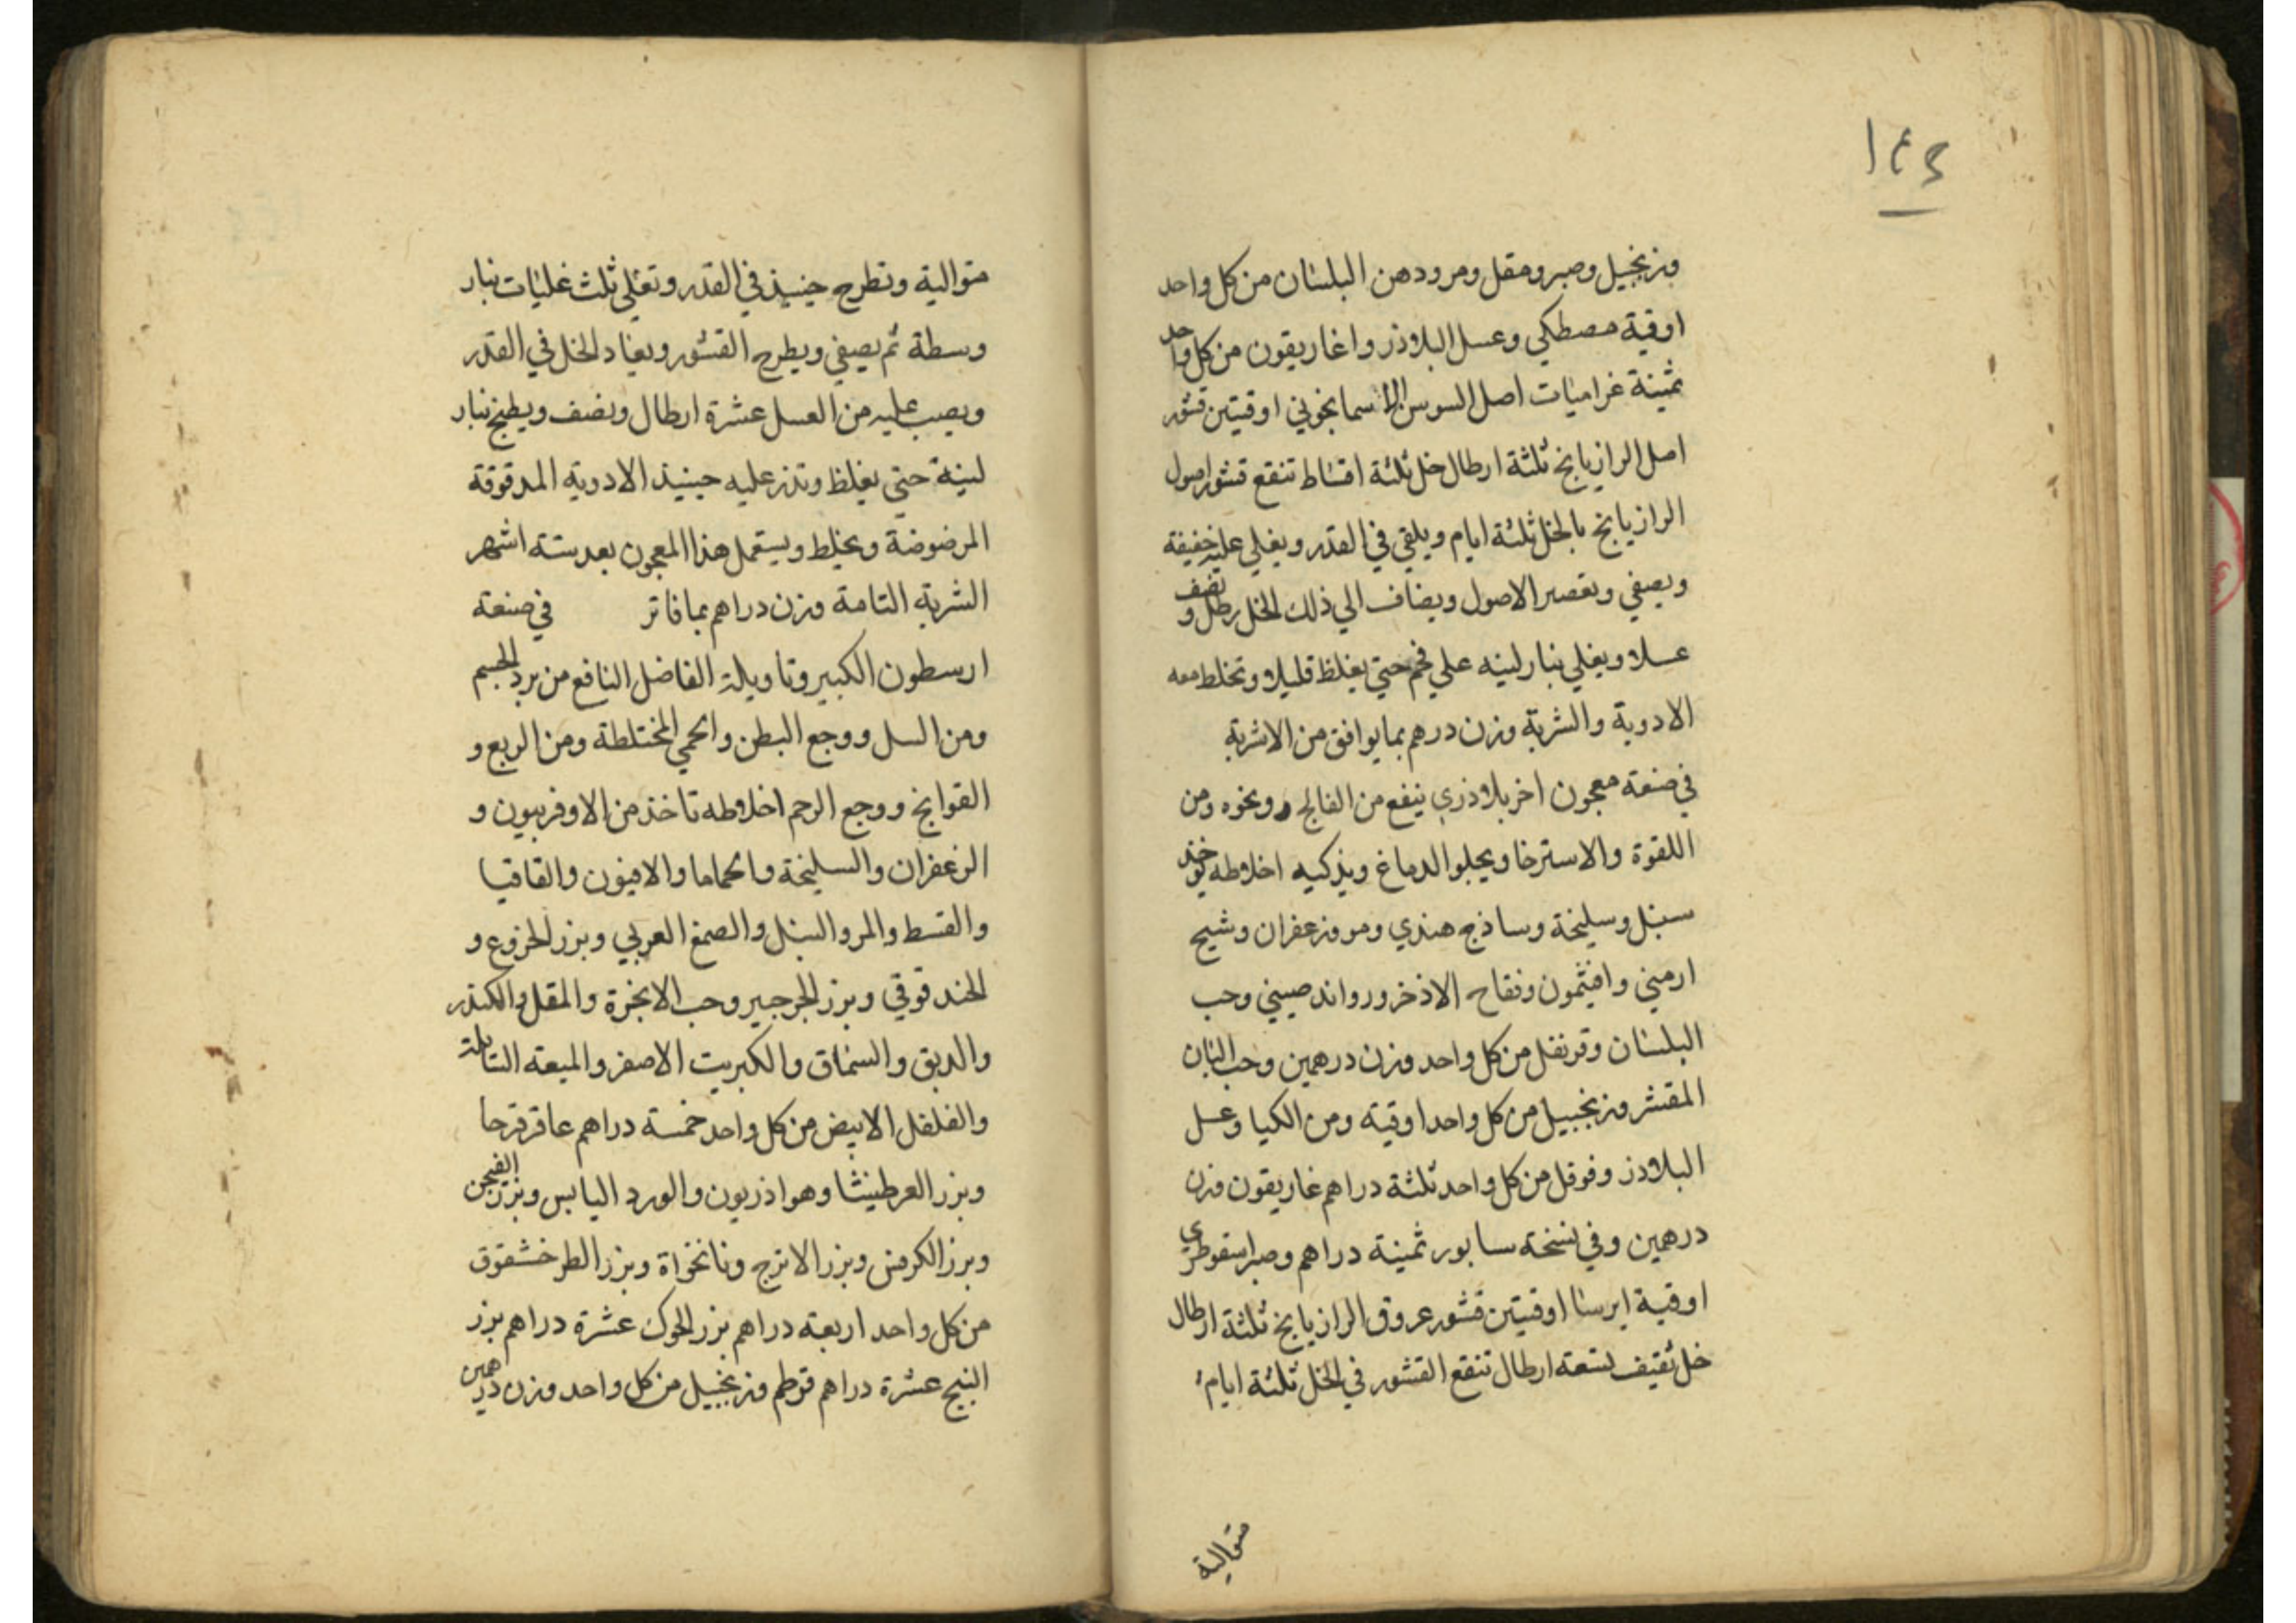 ١٤٤
وزنجبيل وصبر ومقل ومر ودهن البلسان من كل واحد
اوقية مصطكي وعسل البلاذر واغاريقون من كل واحد
ثمنية غراميات اصل السوس الاسمانجوني اوقيتين قشور
اصل الرازيانج ثلثة ارطال خل ثلثة اقساط تنقع قشور اصول
الرازيانج بالخل ثلثة ايام ويلقي في القدر ويغلي عليه خفيفة
ويصفي وتعصر الاصول ويضاف الي ذلك الخل رطل ونصف
عسلا ويغلي بنار لينه علي فحم حتي يغلظ قليلا وتخلط معه
الادوية والشربة وزن درهم بما يوافق من الاشربة
في صنعة معجون اخر بلاذري ينفع من الفالج ونحوه ومن
اللقوة والاسترخا ويجلوا الدماغ ويذكيه اخلاطه يوخذ
سنبل وسليخة وساذج هندي ومر وزعفران وشيح
ارمني وافتيمون وفقاح الاذخر ورواند صيني وحب
البلسان وقرنفل من كل واحد وزن درهمين وحب البان
المقشر وزنجبيل من كل واحد اوقية ومن الكيا وعسل
البلاذر وفوفل من كل واحد ثلثة دراهم غاريقون وزن
درهمين وفي نسخة سابور ثمنية دراهم وصبر اسقوطري
اوقية ايرسا اوقيتين قشور عروق الرازيانج ثلثة ارطال
خل ثقيف تسعة ارطال تنقع القشور في الخل ثلثة ايام
متوالية
متوالية وتطرح حينيذ في القدر وتغلي ثلث غليات بنار
وسطة ثم يصفي ويطرح القشور ويعاد الخل في القدر
ويصب عليه من العسل عشرة ارطال ونصف ويطبخ بنار
لينة حتي يغلظ وتذر عليه حينيذ الادوية المدقوقة
المرضوضة ويخلط ويستعمل هذا المعجون بعد ستة اشهر
الشربة التامة وزن دراهم بما فاتر في صنعة
ارسطون الكبير وتاويلة الفاضل النافع من برد الجسم
ومن السل ووجع البطن والحمي المختلطة ومن الربع و
القوابخ ووجع الرحم اخلاطه تاخذ من الاوفربيون و
الزعفران والسليخة والحماما والافيون والقاقيا
والقسط والمر والسنبل والصمغ العربي وبزر الخروع و
الحندقوقي وبزر الجرجير وحب الانجرة والمقل والكندر
والدبق والسماق والكبريت الاصفر والميعه السايلة
والفلفل الابيض من كل واحد خمسة دراهم عاقرقرحا
وبزر العرطنيثا وهو اذريون والورد اليابس وبزر الفيجن
وبزر الكرفس وبزر الاترج ونانخواة وبزر الطرخشقوق
من كل واحد اربعة دراهم بزر الحوك عشرة دراهم بزر
البنج عشرة دراهم قرطم وزنجبيل من كل واحد وزن درهمين